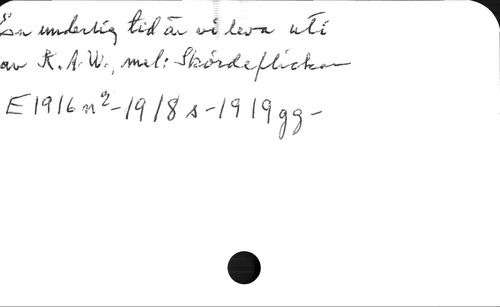 En underlig tid är vi leva uti
av K. A. W., mel: Skördeflickan
E 1916 n² - 1918 s - 1919 gg -